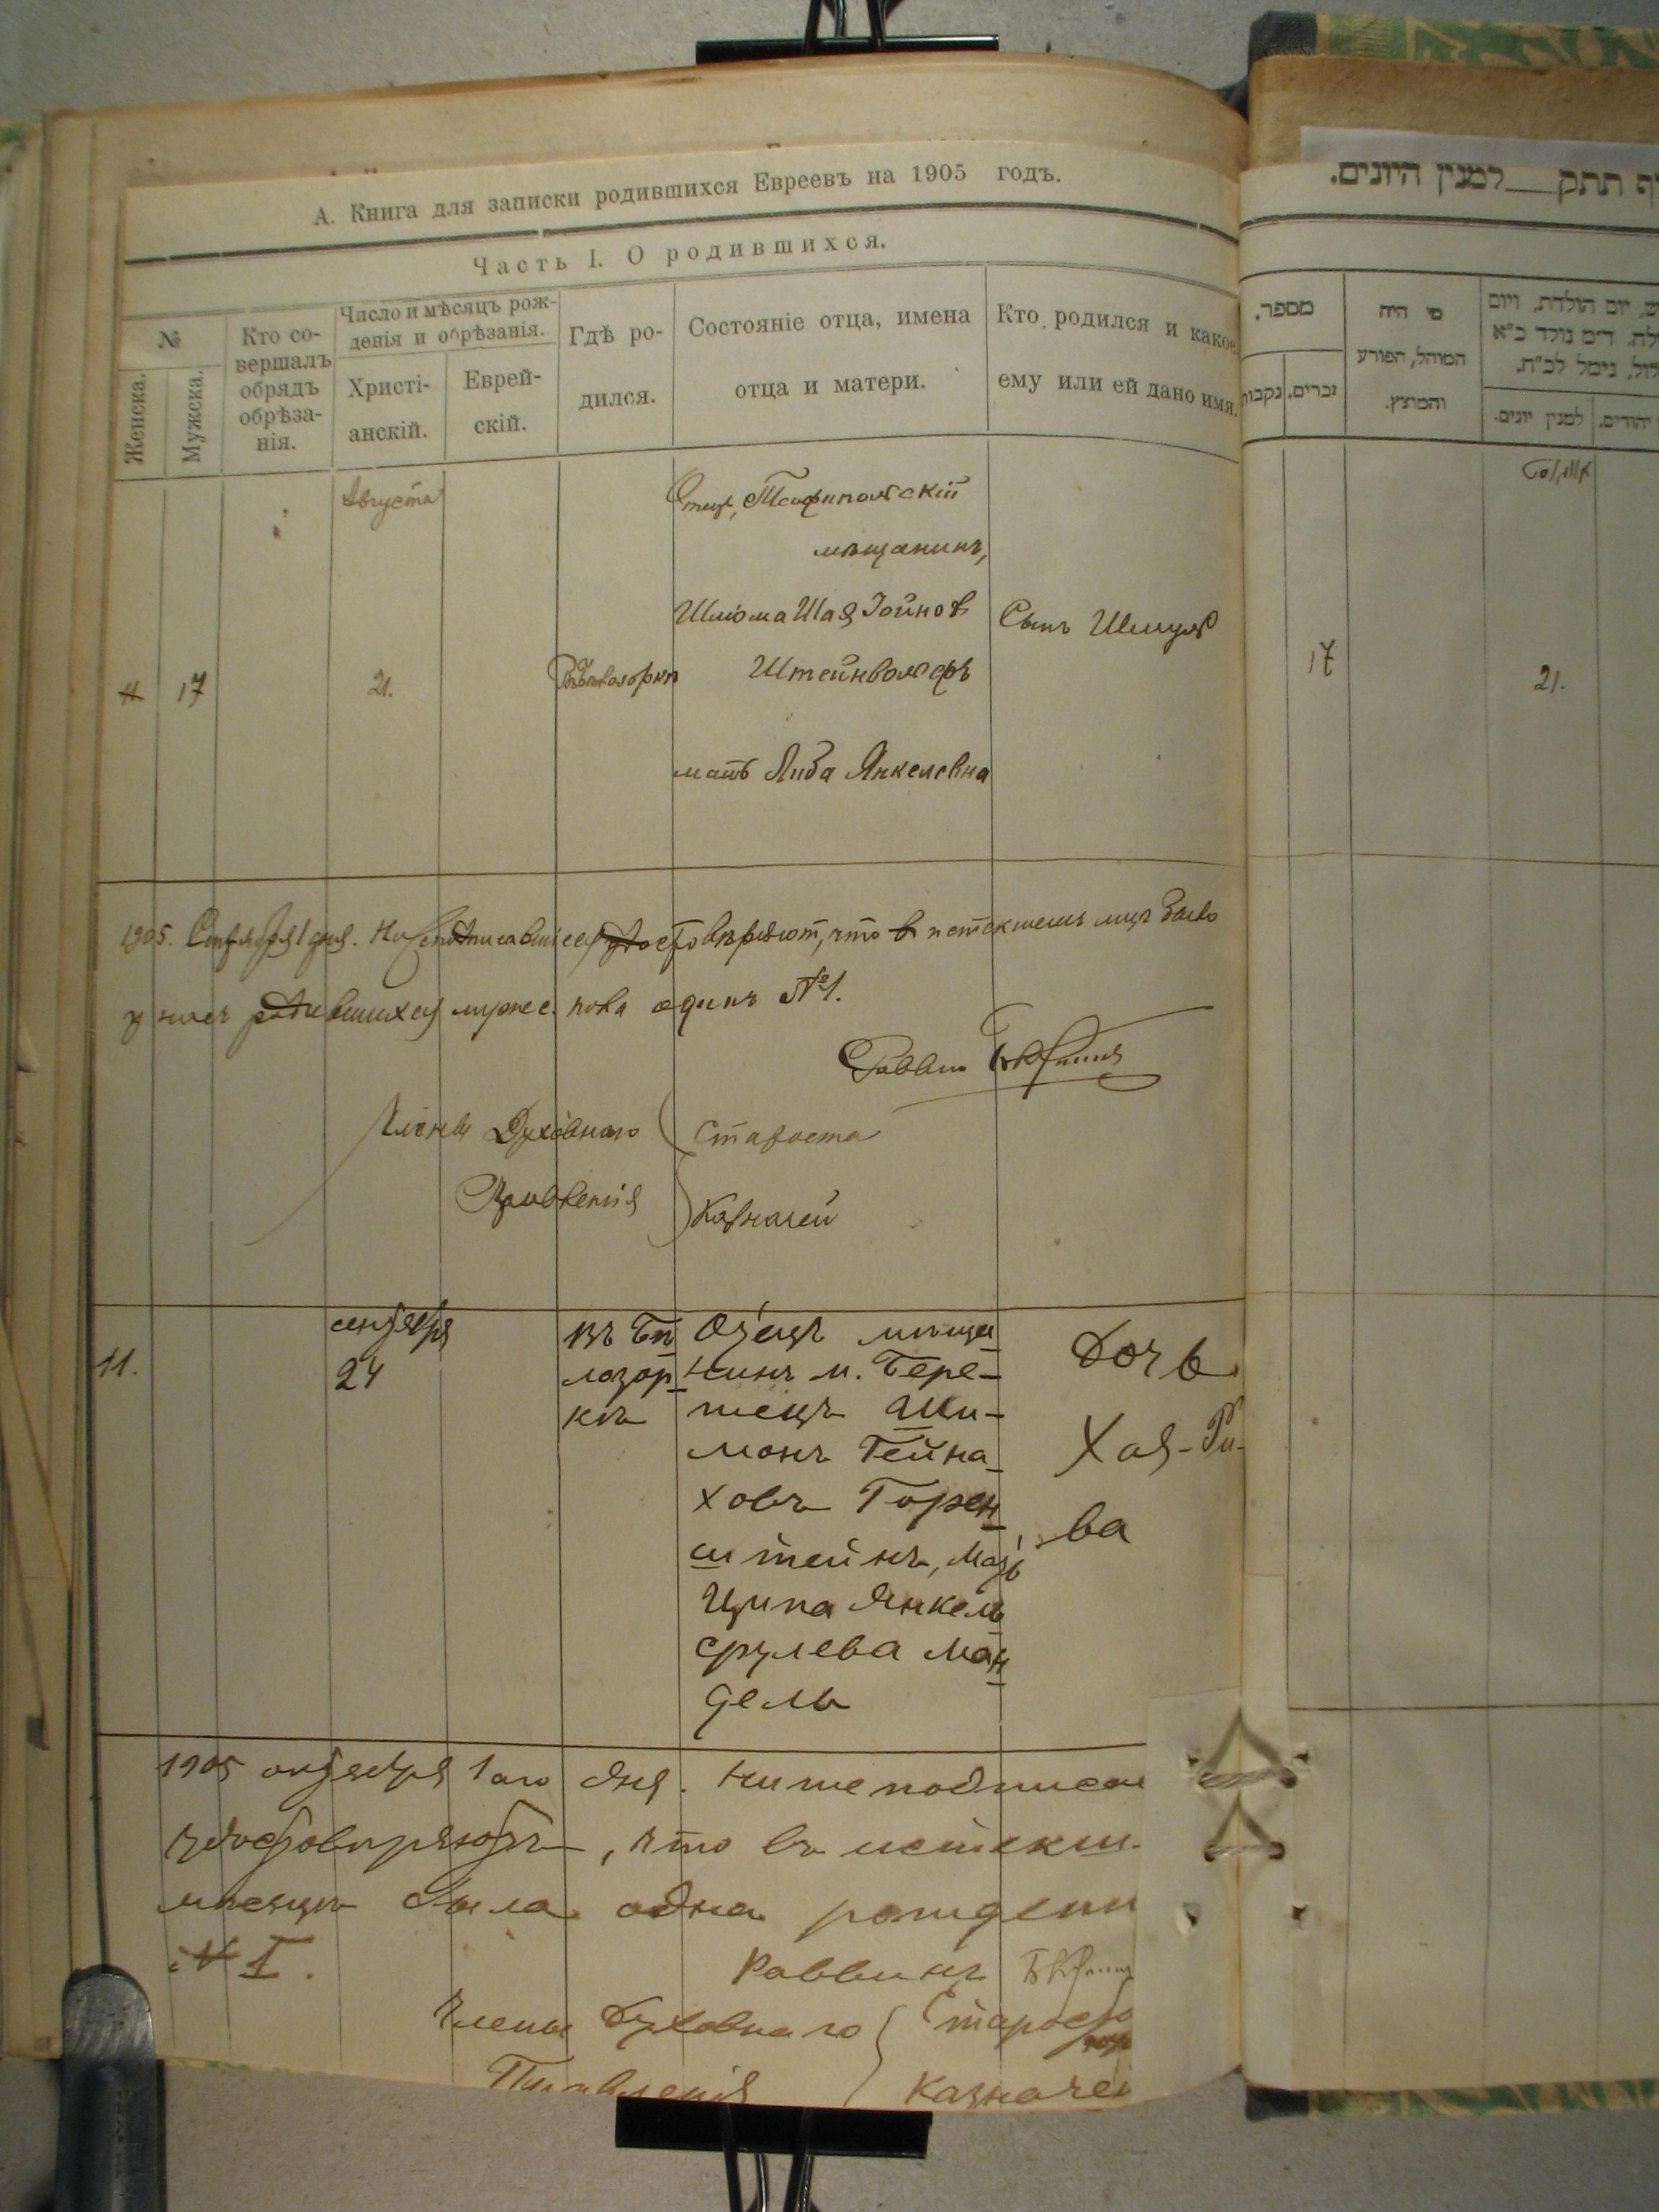 А. Книга для записки родившихся Евреевъ на 1905 годъ.
Часть I. О родившихся.
№
Женска.
Мужска.
Кто со-
вершалъ
обрядъ
обрѣза-
нія.
Число и мѣсяцъ рож-
денія и обрѣзанія.
Христі-
анскій.
Еврей-
скій.
Гдѣ ро-
дился.
Состояніе отца, имена
отца и матери.
Кто родился и какое
ему или ей дано имя.
Августа
17
21.
Отецъ, Теофипольскій
мѣщанинъ,
Шлюма Шая Іойнов
Штейнвольфъ
мать Либа Янкелевна
Сынъ Шмуль
1905. Сентября 1 дня. Нижеподписавшіеся удостовѣряют, что в истекшемъ мцѣ было
у нихъ родившихся мужес. пола одинъ №1.
Раввин
Члены Духовнаго
Правленія
Староста
Казначей
11.
сентября
24
въ Бѣ
лозор
кѣ
Отецъ мѣща
нинъ м. Бере-
жецъ Ши-
монъ Гейна-
ховъ Горен
штейнъ, мать
Ципа Янкель
срулева Ман
дель
Дочь
Хая-Ри-
ва
1905 октября 1 ого дня. Нижеподписав
удостовѣряютъ, что въ истекш.
мѣсяцѣ была одна рожденн
№ 1.
Раввинъ
Члены Духовнаго
Правленія
Старост
Казначей
ף תתק__למנין היונים.
מספר.
זכרים.
נקבות
מי היה
המוהל, הפורע
והמוצץ.
ש, יום הולדת, ויום
לה. ד״מ נולד כ״א
לול, נימל לכ״ח.
למנין יונים.
יהודים.
17
21.